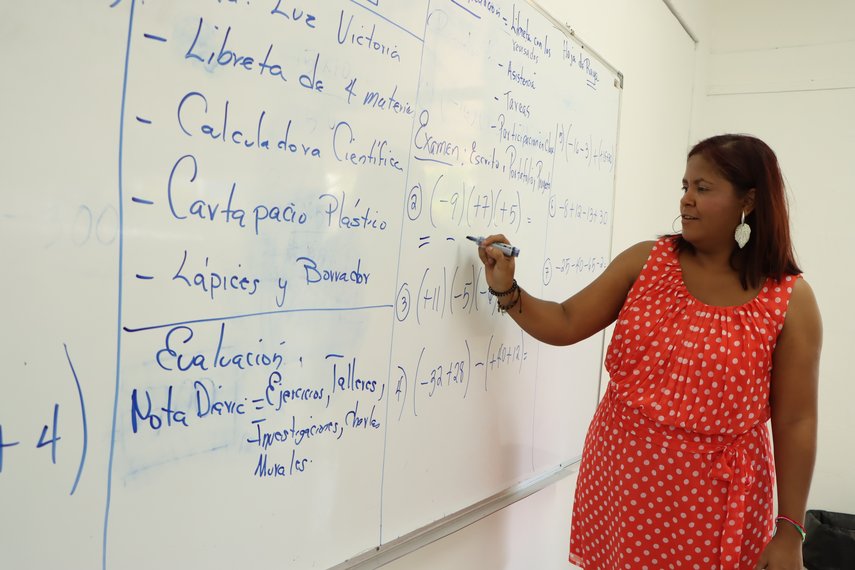 Luz Victoria
- Libreta de 4 materia
- Calculadora Científica
- Cartapacio Plástico
- Lápices y Borrador
Evaluación.
Nota Diaria = Ejercicios, Talleres,
Investigaciones, Charlas
Murales.
+ 4)
= Libreta con los
- Asistencia
- Tareas
- Participación
Examen. Escrito, Portafolio,
② (-9)(+7)(+5) =
= -
③ (+11)(-5)(-
4) (-32+28) - (+40+12)=
Hoja de
-8+12-13+30
⑦ -25-40-65-